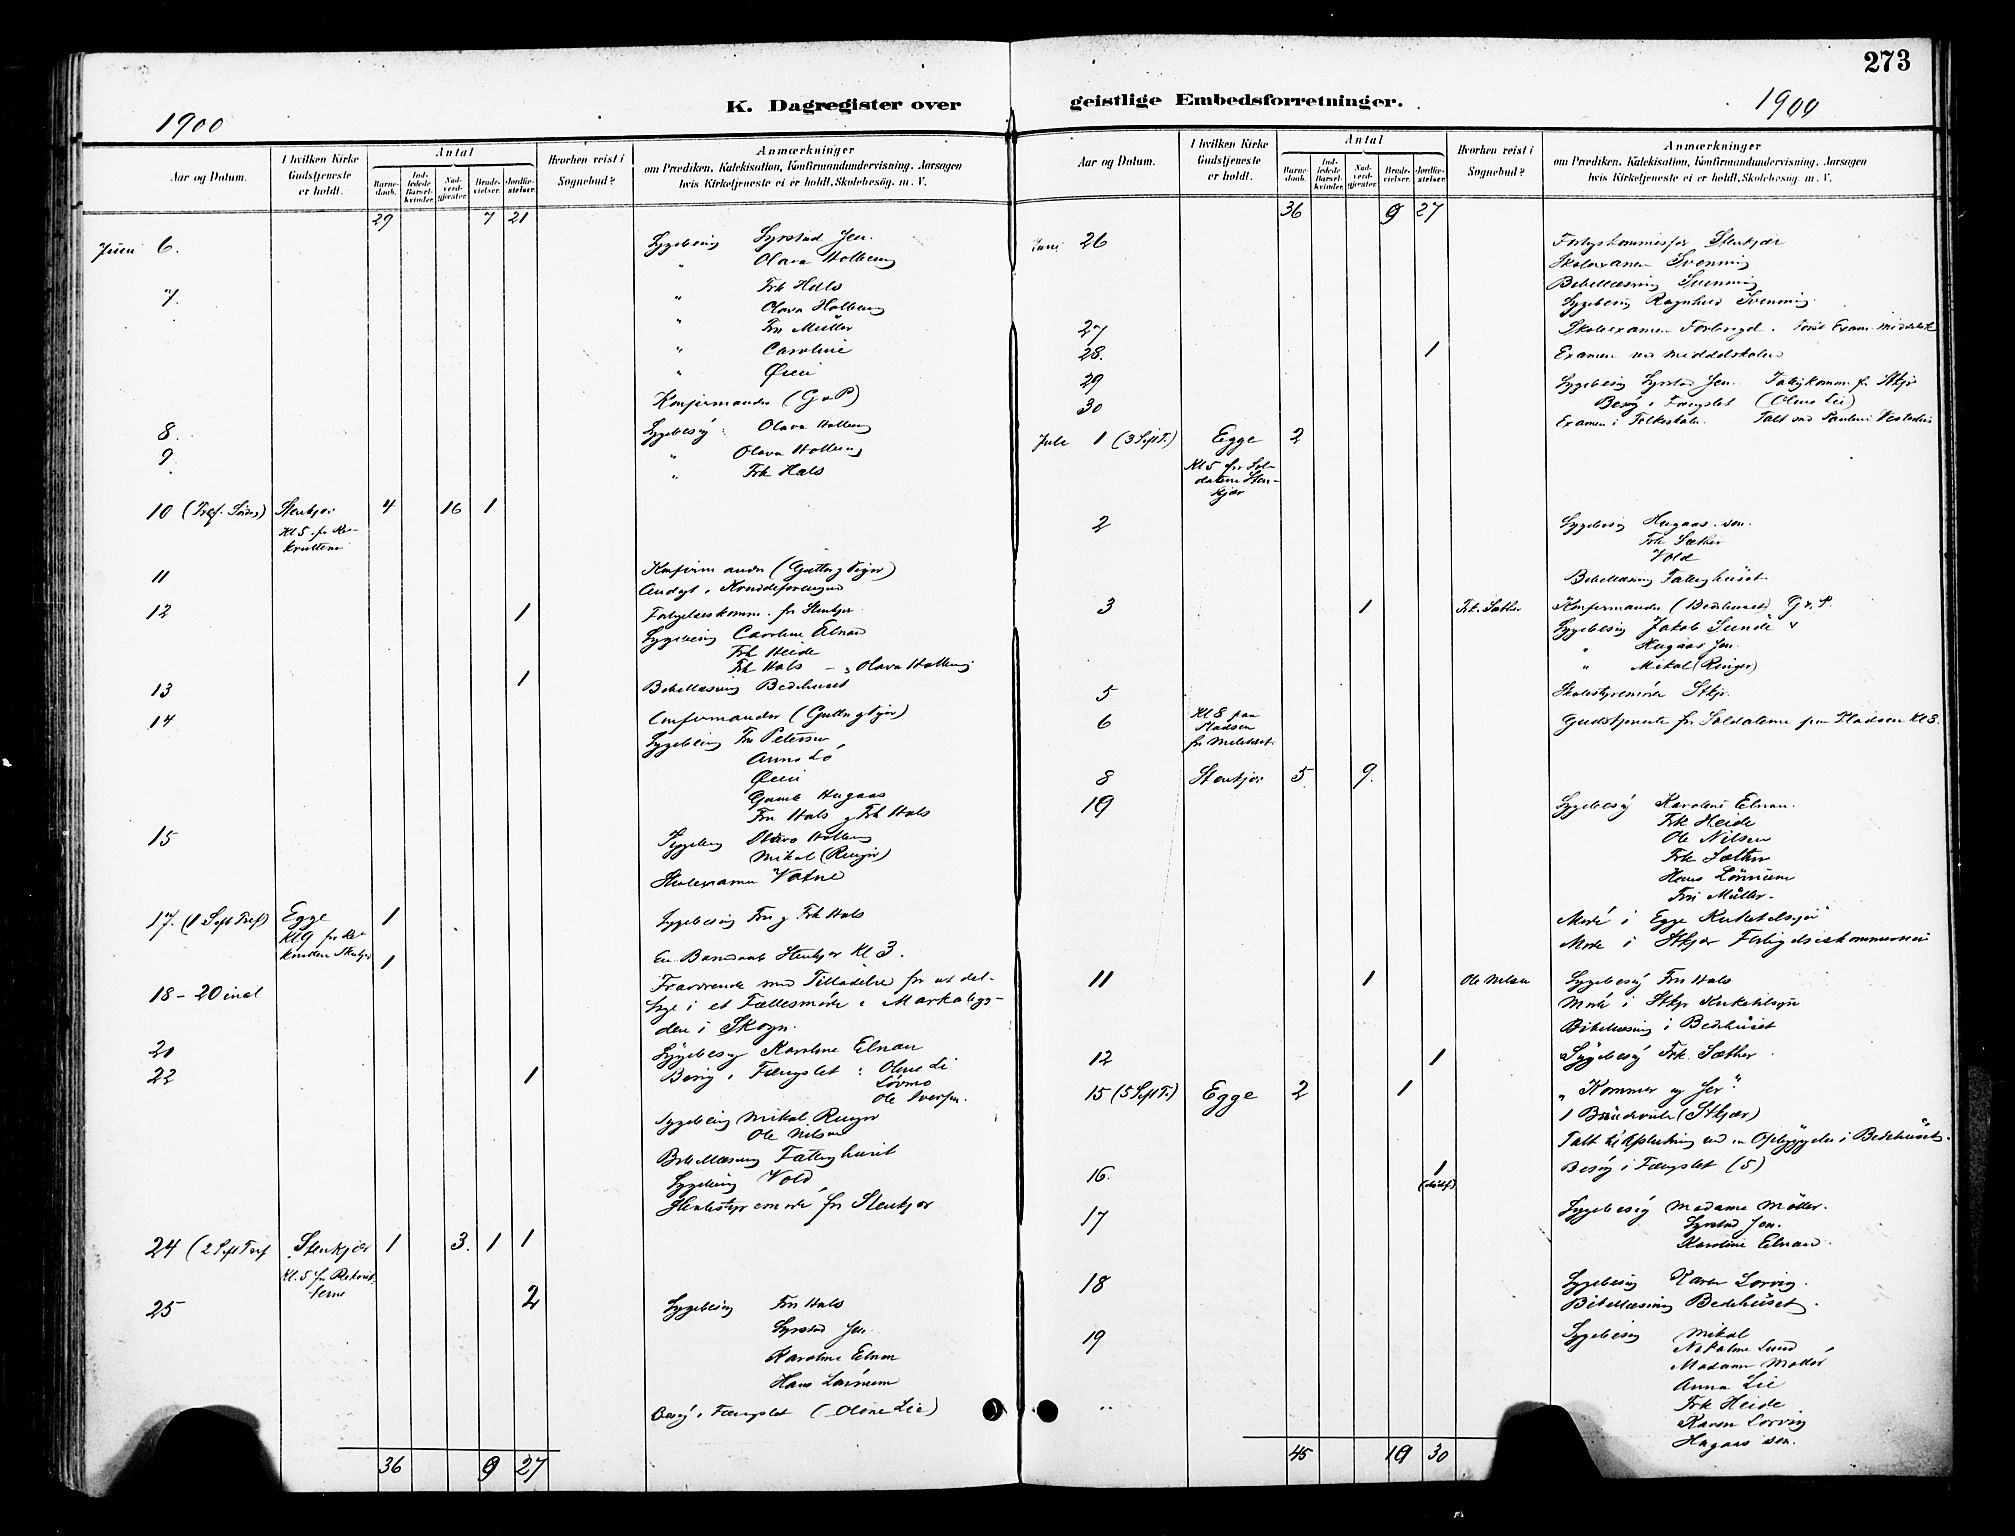 273
K. Dagregister over geistlige Embedsforretninger.
1900
1900
Aar og Datum.
I hvilken Kirke Gudstjeneste er holdt.
Antal
Barnedaab.
Indledede Barselkvinder.
Nadverdgjæster.
Brudevielser.
Jordfæstelser.
Hvorhen reist i Sognebud?
Anmærkninger
om Prædiken, Katekisation, Konfirmandundervisning, Aarsagen
hvis Kirketjeneste ei er holdt, Skolebesøg, m. V.
29 7 21
Juni 6. Sygebesøg Syrstad Jen.
" Olava Holberg
7 " Frk Hals
" Olava Holberg
" Fru Müller
" Caroline
" Øien
Konfirmander (G o P)
8. Sygebesøg: Olava Holberg
9. " Olava Holberg
" Frk Hals
10 (Tref. Sønd.) Stenkjær 4 16 1
Kl 5 for Rekrutterne
11 Konfirmander (Gutter og Piger)
Andagt i Kvindeforeningen
12 1 Forligelseskomm. for Stenkjær
Sygebesøg Caroline Elnan
Frk Heide
Frk Hals - " Olava Holberg
13 1 Bibellæsning Bedehuset
14 Confirmander (Gutter og Piger)
Sygebesøg Fru Petersen
Anna Lö
Øien
Gamle Hugaas
Fru Hals og Frk Hals
15 Sygebesøg Olava Holberg
Mikal (Ringer)
Skoleexamen Vatne
17. (1 S eft Tref) Egge 1 Sygebesøg Fru og Frk Hals
Kl 9 for Rekrutterne Stenkjær
1 En Barnedaab Stenkjær Kl 3.
18 - 20 incl Fraværende med Tilladelse for at deltage i et Fællesmøde i Markabygden i Skogn.
20 Sygebesøg Karoline Elnan
22 1 Besøg i Fængslet: Oline Li
Lövmo
Ole Iversen.
Sygebesøg Mikal Ringer
Ole Nilsen
Bibellæsning Fattighuset
Sygebesøg Vold
Skolestyremøde for Stenkjær
24 (2 S eft Tref Stenkjær 1 3. 1 1
Kl. 5 for Rekrutterne
2
25 Sygebesøg Fru Hals
Syrstad Jen.
Karoline Elnan
Hans Lönnum
Besøg i Fængslet (Oline Lie)
36 9 27
Aar og Datum.
I hvilken Kirke Gudstjeneste er holdt.
Antal
Barnedaab.
Indledede Barselkvinder.
Nadverdgjæster.
Brudevielser.
Jordfæstelser.
Hvorhen reist i Sognebud?
Anmærkninger
om Prædiken, Katekisation, Konfirmandundervisning, Aarsagen
hvis Kirketjeneste ei er holdt, Skolebesøg, m. V.
36 9 27
Juni 26 Stenkjær
Skoleexamen Svenning
Bibellæsning Svenning
Sygebesøg Ragnhild Svenning
27 Skoleexamen
28. 1 Examen ved Middelskolen
29 Sygebesøg Syrstad Jen. Fattigkomm. for Stkjr
30 Besøg i Fængslet (Oline Lie)
Examen i Folkeskolen.
Juli 1 (3 S eft T.) Egge 2
Kl 5 for Soldaterne Stenkjær
2 Sygebesøg Hugaas sen.
Frk Sæther
Vold
Bibellæsning Fattighuset
3 1 Frk. Sæther Konfirmander (Bedehuset) G o P.
Sygebesøg Jakob Sunde
" Hugaas Jen.
" Mikal (Ringer)
5 Skolestyremøde Stkjr.
6 Kl 8 paa Pladsen for Militæret. Gudstjeneste for Soldaterne paa Pladsen Kl 8.
8 Stenkjær 5 9.
10 Sygebesøg Karoline Elnan.
Frk Heide
Ole Nilsen
Frk Sæther
Hans Lönnum
Fru Müller.
Møde i Egge Kirketilsyn
Møde i Stkjær Forligelseskommission
11 1 Ole Nilsen Sygebesøg Fru Hals
Møde i Stkjr Kirketilsyn
Bibellæsning i Bedehuset
12 1 Sygebesøg Frk. Sæther
15 (5 S eft T.) Egge 2 1 "Kommer og ser"
1 Brudevielse (Stkjær)
i Bedehuset.
16. 1 Besøg i Fængslet (5)
17 Sygebesøg Madame Møller.
Syrstad Jen.
Karoline Elnan.
18 Sygebesøg Karen Lorvig.
Bibellæsning Bedehuset.
19 Sygebesøg Mikal
Nikoline Lund
Madame Møller
Anna Lie
Frk Heide
Karen Lorvig
Hugaas sen.
45 10 30